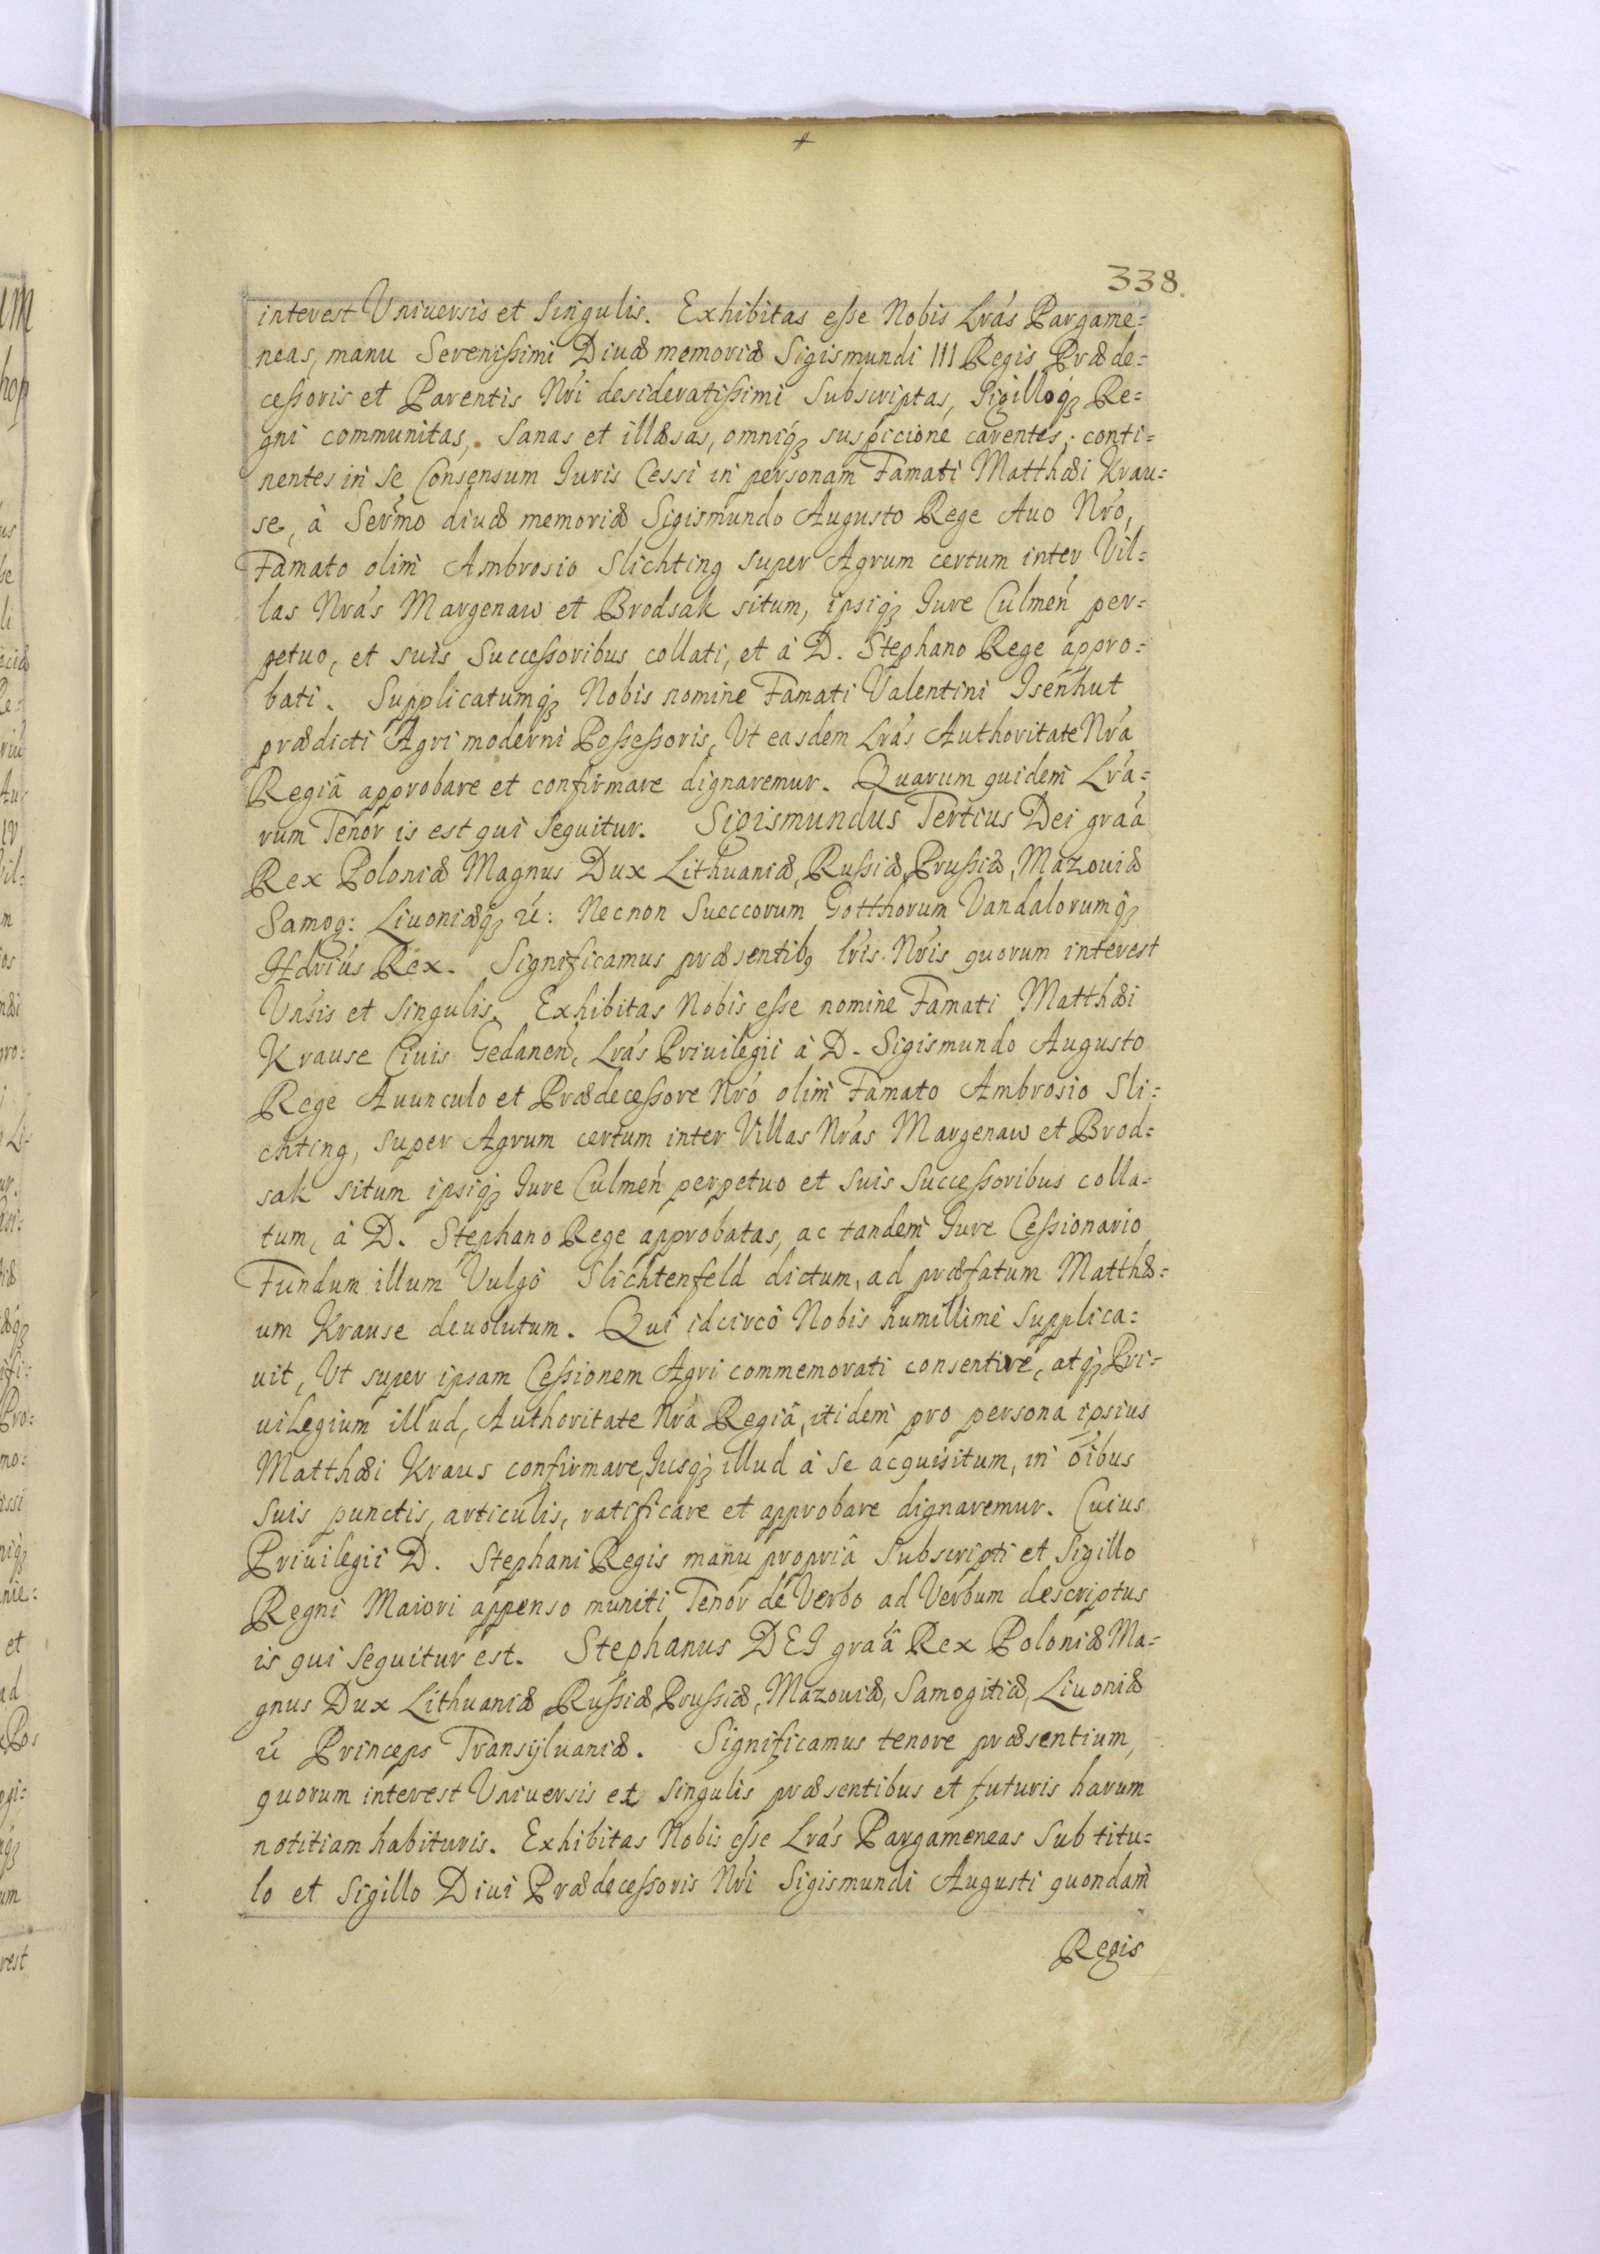 338.
interest Vniuersis et Singulis. Exhibitas esse Nobis Lrás Pargame=
neas, manu Serenissimi Diuæ memoriæ Sigismundi III Regis Præde=
cessoris et Parentis Nrĩ desideratissimi Subscriptas, Sigilloq₃ Re=
gni communitas, Sanas et illæsas, omniq₃ suspicione carentes, conti=
nentes in se Consensum Iuris Cessi in personam Famati Matthæi Krau=
se, à Sermo diuæ memoriæ Sigismundo Augusto Rege Auo Nro,
Famato olim Ambrosio Slichting super Agrum certum inter Vil=
las Nrás Margenaw et Brodsak situm, ipsiq₃ Iure Culmen per=
petuo, et suis Successoribus collati, et à D. Stephano Rege appro=
bati. Supplicatumq₃ Nobis nomine Famati Valentini Isenhut
prædicti Agri moderni Possessoris, Vt easdem Lrás Authoritate Nrá
Regiâ approbare et confirmare dignaremur. Quarum quidem Lrá=
rum Tenor is est qui sequitur. Sigismundus Tertius Dei graá
Rex Poloniæ Magnus Dux Lithuaniæ, Russiæ, Prussiæ, Mazouiæ
Samog: Liuoniæq₃ ú: Necnon Sueccorum Gotthorum Vandalorumq₃
Hdriús Rex. Significamus præsentibꝫ lris Nris quorum interest
Vnsis et Singulis. Exhibitas Nobis esse nomine Famati Matthæi
Krause Ciuis Gedanen, Lrás Priuilegii à D. Sigismundo Augusto
Rege Auunculo et Prædecessore Nró olim Famato Ambrosio Sli=
chting, super Agrum certum inter Villas Nrás Margenaw et Brod=
sak situm ipsiq₃ Iure Culmen perpetuo et suis Successoribus colla=
tum, à D. Stephano Rege approbatas, ac tandem Iure Cessionario
Fundum illum Vulgo Slichtenfeld dictum, ad præfatum Matthæ=
um Krause deuolutum. Qui idcirco Nobis humillimè supplica=
uit, Vt super ipsam Cessionem Agri commemorati consentire, atq₃ Pri=
uilegium illud, Authoritate Nrá Regiâ, itidem pro persona ipsius
Matthæi Kraus confirmare, Iusq₃ illud à se acquisitum, in oĩbus
suis punctis, articulis, ratificare et approbare dignaremur. Cuius
Priuilegii D. Stephani Regis manu propriâ Subscripti et Sigillo
Regni Maiori appenso muniti Tenor de Verbo ad Verbum descriptus
is qui sequitur est. Stephanus DEI graâ Rex Poloniæ Ma=
gnus Dux Lithuaniæ Russiæ, Prussiæ, Mazouiæ, Samogitiæ, Liuoniæ
ú Princeps Transyluaniæ. Significamus tenore præsentium,
quorum interest Vniuersis et Singulis præsentibus et futuris harum
notitiam habituris. Exhibitas Nobis esse Lrás Pargameneas sub titu=
lo et Sigillo Diui Prædecessoris Nrĩ Sigismundi Augusti quondam
Regis